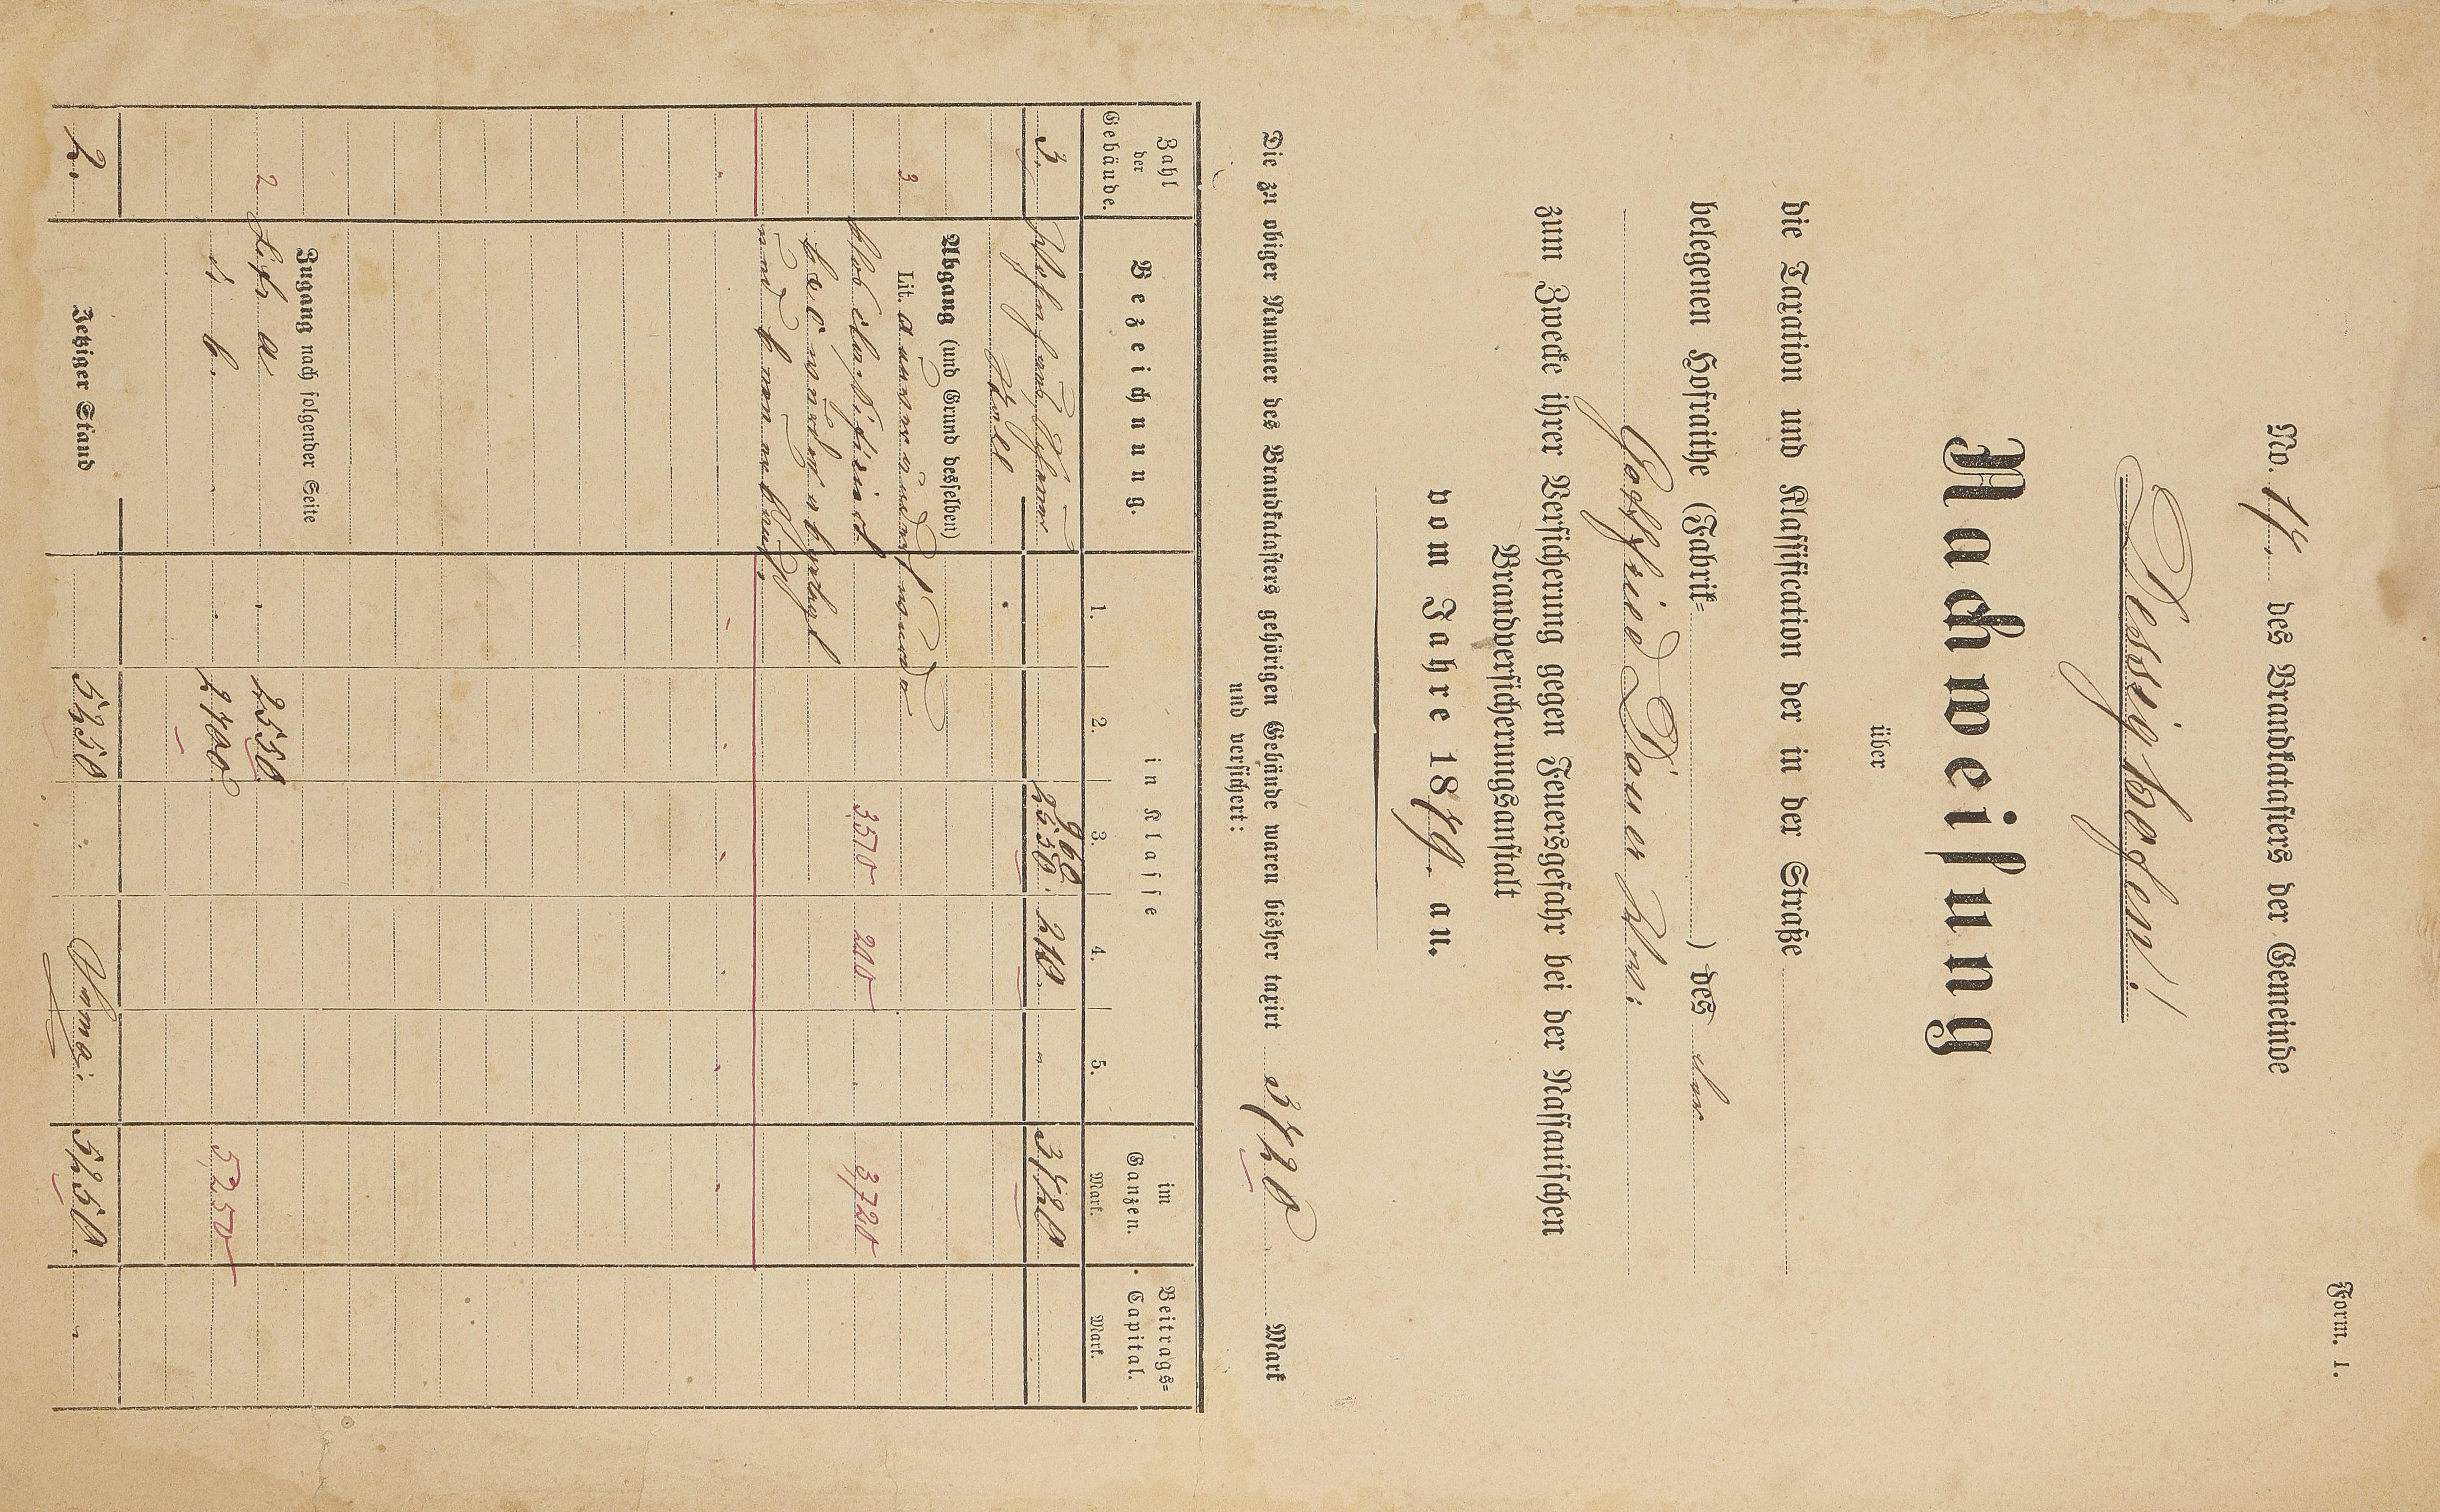 Form. I.
No. 17. des Brandkatasters der Gemeinde
Dessighofen!
Nachweisung
über
die Taxation und Klassification der in der Straße
belegenen Hofraithe (Fabrik= ) des der
Gottfried Dauer
zum Zwecke ihrer Versicherung gegen Feuersgefahr bei der Nassauischen
Brandversicherungsanstalt
vom Jahre 1879. an.
Die zu obiger Nummer des Brandkatasters gehörigen Gebäude waren bisher taxirt 3720 Mark
und versichert:
Zahl der Gebäude.
Bezeichnung.
in Klasse
im Ganzen.
Beitrags=Capital.
1. 2. 3. 4. 5. Mark. Mark.
960
3. Wohnhaus, Scheuer 2550. 210. " 3720
Stall
Abgang (und Grund desselben)
3 Lit. a wurde
3,570 200 3,720
und b neu erbaut.
Zugang nach folgender Seite
2 Litr a 2550.
" b. 2700
5,250
2. Jetziger Stand 5250 Summa: 5250.